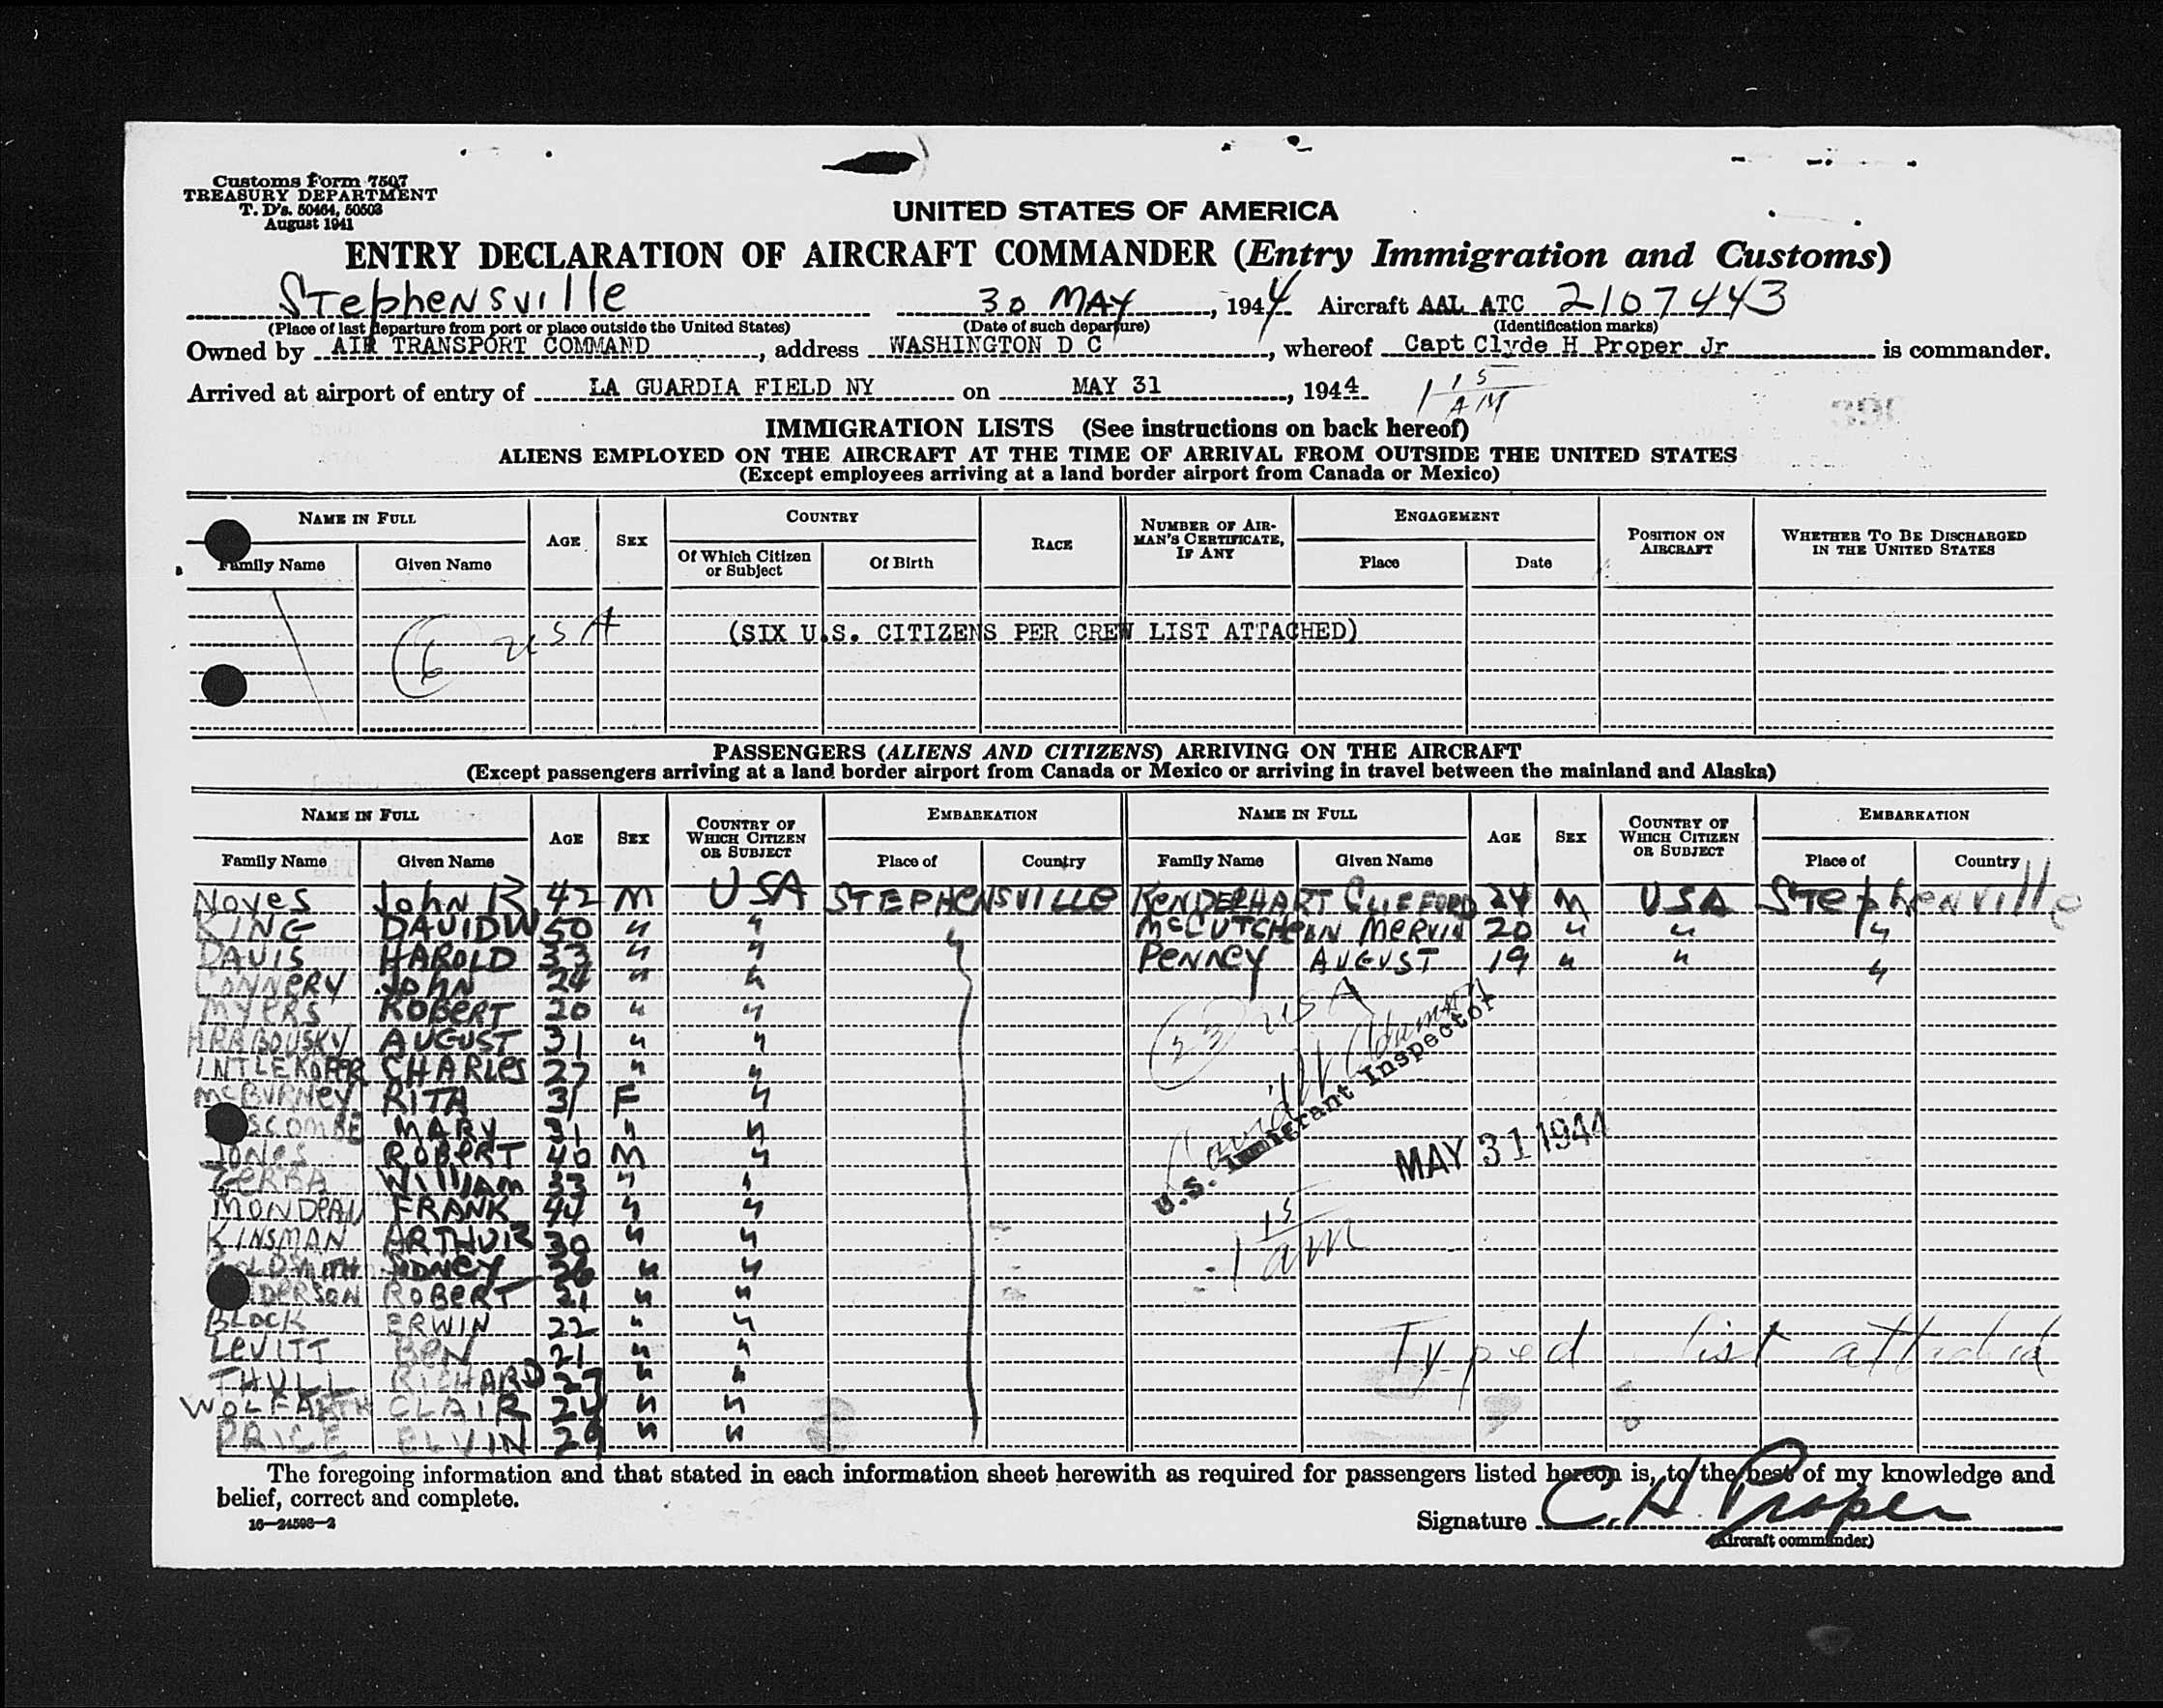 Customs Form 7507
TREASURY DEPARTMENT
T. D's. 50464, 50503
August 1941
UNITED STATES OF AMERICA
ENTRY DECLARATION OF AIRCRAFT COMMANDER (Entry Immigration and Customs)
Stephensville 30 MAY, 1944 Aircraft AAL ATC 2107443
(Place of last departure from port or place outside the United States) (Date of such departure) (Identification marks)
Owned by AIR TRANSPORT COMMAND, address WASHINGTON D C, whereof Capt Clyde H Proper Jr is commander.
Arrived at airport of entry of LA GUARDIA FIELD NY on MAY 31, 1944 1 15 AM
IMMIGRATION LISTS (See instructions on back hereof)
ALIENS EMPLOYED ON THE AIRCRAFT AT THE TIME OF ARRIVAL FROM OUTSIDE THE UNITED STATES
(Except employees arriving at a land border airport from Canada or Mexico)
NAME IN FULL AGE SEX COUNTRY RACE NUMBER OF AIRMAN'S CERTIFICATE, IF ANY ENGAGEMENT POSITION ON AIRCRAFT WHETHER TO BE DISCHARGED IN THE UNITED STATES
Family Name Given Name Of Which Citizen or Subject Of Birth Place Date
6 USA (SIX U.S. CITIZENS PER CREW LIST ATTACHED)
PASSENGERS (ALIENS AND CITIZENS) ARRIVING ON THE AIRCRAFT
(Except passengers arriving at a land border airport from Canada or Mexico or arriving in travel between the mainland and Alaska)
NAME IN FULL AGE SEX COUNTRY OF WHICH CITIZEN OR SUBJECT EMBARKATION NAME IN FULL AGE SEX COUNTRY OF WHICH CITIZEN OR SUBJECT EMBARKATION
Family Name Given Name Place of Country Family Name Given Name Place of Country
Noyes John R 42 M USA STEPHENSVILLE KENDERHART CLIFFORD 24 M USA Stephenville
KING DAVID W 50 " " " McCUTCHEAN MERVIN 20 " " "
DAVIS HAROLD 33 " " PENNEY AUGUST 19 " " "
CONNERY JOHN 24 " "
MYERS ROBERT 20 " "
HRABOUSKY AUGUST 31 " " 23 USA
INTLEKOFER CHARLES 27 " "
McBURNEY RITA 31 F "
SCOMBE MARY 31 " " U.S. Immigrant Inspector
JONES ROBERT 40 M " MAY 31 1944
ZERRA WILLIAM 33 " "
MONDEAU FRANK 44 " "
KINSMAN ARTHUR 30 " " 1 15 am
GOLDSMITH SIDNEY 26 " "
DERSON ROBERT 21 " "
BLOCK ERWIN 22 " "
LEVITT BEN 21 " " Typed list attached
THULL RICHARD 27 " "
WOLFARTH CLAIR 24 " "
PRICE ELVIN 29 " "
The foregoing information and that stated in each information sheet herewith as required for passengers listed hereon is, to the best of my knowledge and
belief, correct and complete.
16—24598—2
Signature C. H. Proper
(Aircraft commander)